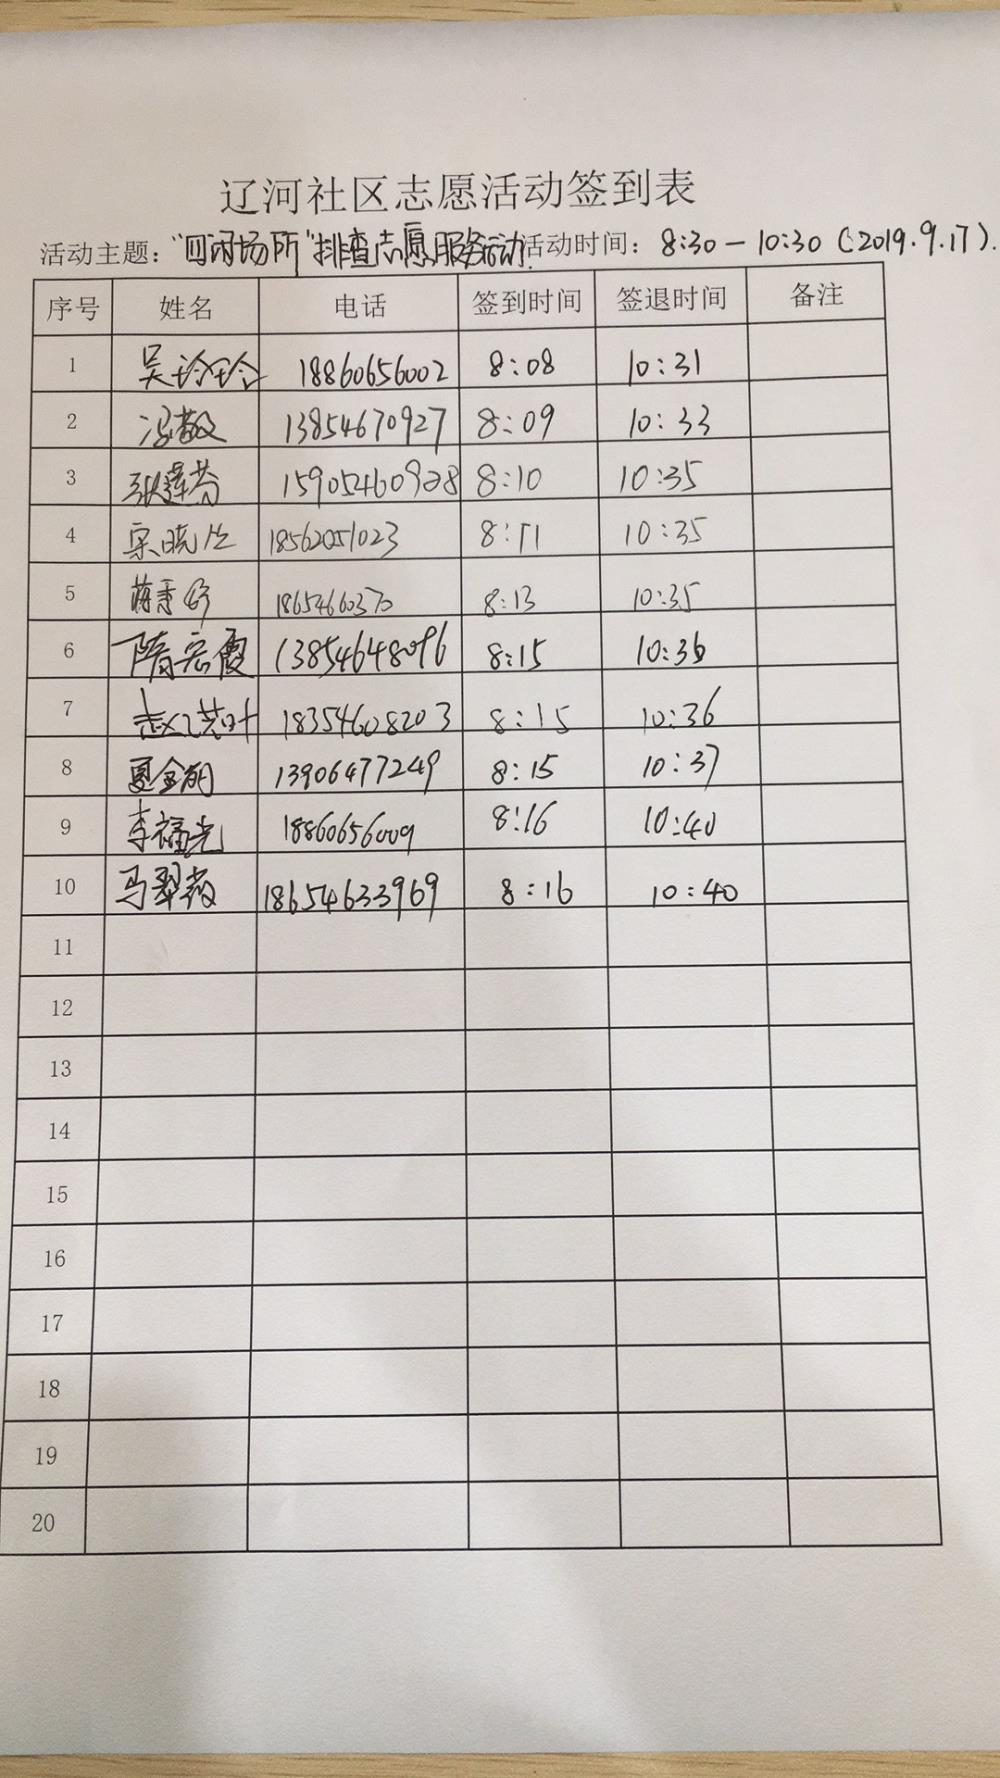 辽河社区志愿活动签到表
活动主题："四闭场所"排查志愿服务活动. 活动时间：8:30-10:30(2019.9.17).
序号 姓名 电话 签到时间 签退时间 备注
1 吴玲玲 18860656002 8:08 10:31
2 冯敬 13854670927 8:09 10:33
3 15905460928 8:10 10:35
4 宋晓 18562051023 8:11 10:35
5 蒋秀 18654660370 8:13 10:35
6 隋宏霞 13854648096 8:15 10:36
7 赵 叶 18354608203 8:15 10:36
8 夏金 13906477249 8:15 10:37
9 李福光 18860656009 8:16 10:40
10 马翠 18654633969 8:16 10:40
11
12
13
14
15
16
17
18
19
20